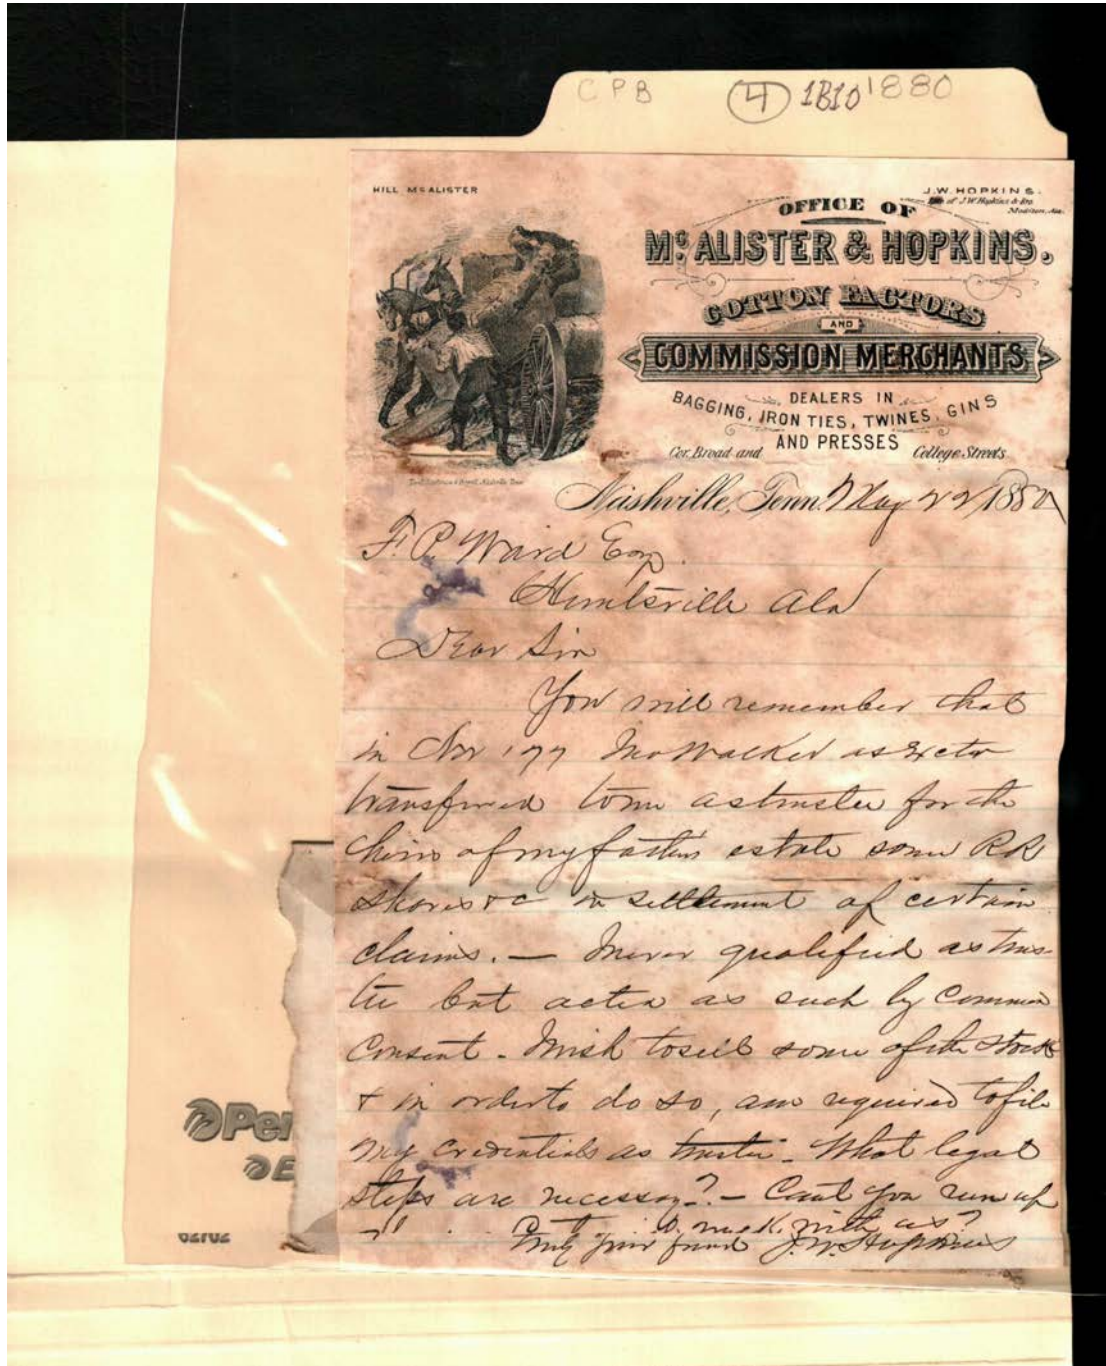 CPB (4) 1B10 1880
HILL McALISTER
J.W. HOPKINS.
of J.W. Hopkins & Bro.
Madison, Ala.
OFFICE OF
McALISTER & HOPKINS.
COTTON FACTORS
AND
COMMISSION MERCHANTS
DEALERS IN
BAGGING, IRON TIES, TWINES, GINS
AND PRESSES
Cor. Broad and College Streets
Nashville, Tenn. May 22 1880
F. P. Ward Esq.
Huntsville Ala
Dear Sir
You will remember that
in Nov '77 Jno Walker as Exctr
transfered to me as trustee for the
heirs of my father's estate some RR
shares &c in settlement of certain
claims. — I never qualified as trus-
tee but acted as such by common
consent - I wish to sell some of the stock
& in order to do so, am required to file
my credentials as trustee - What legal
steps are necessary? - Cant you run up
with us?
Truly your friend J.W. Hopkins
Per
E